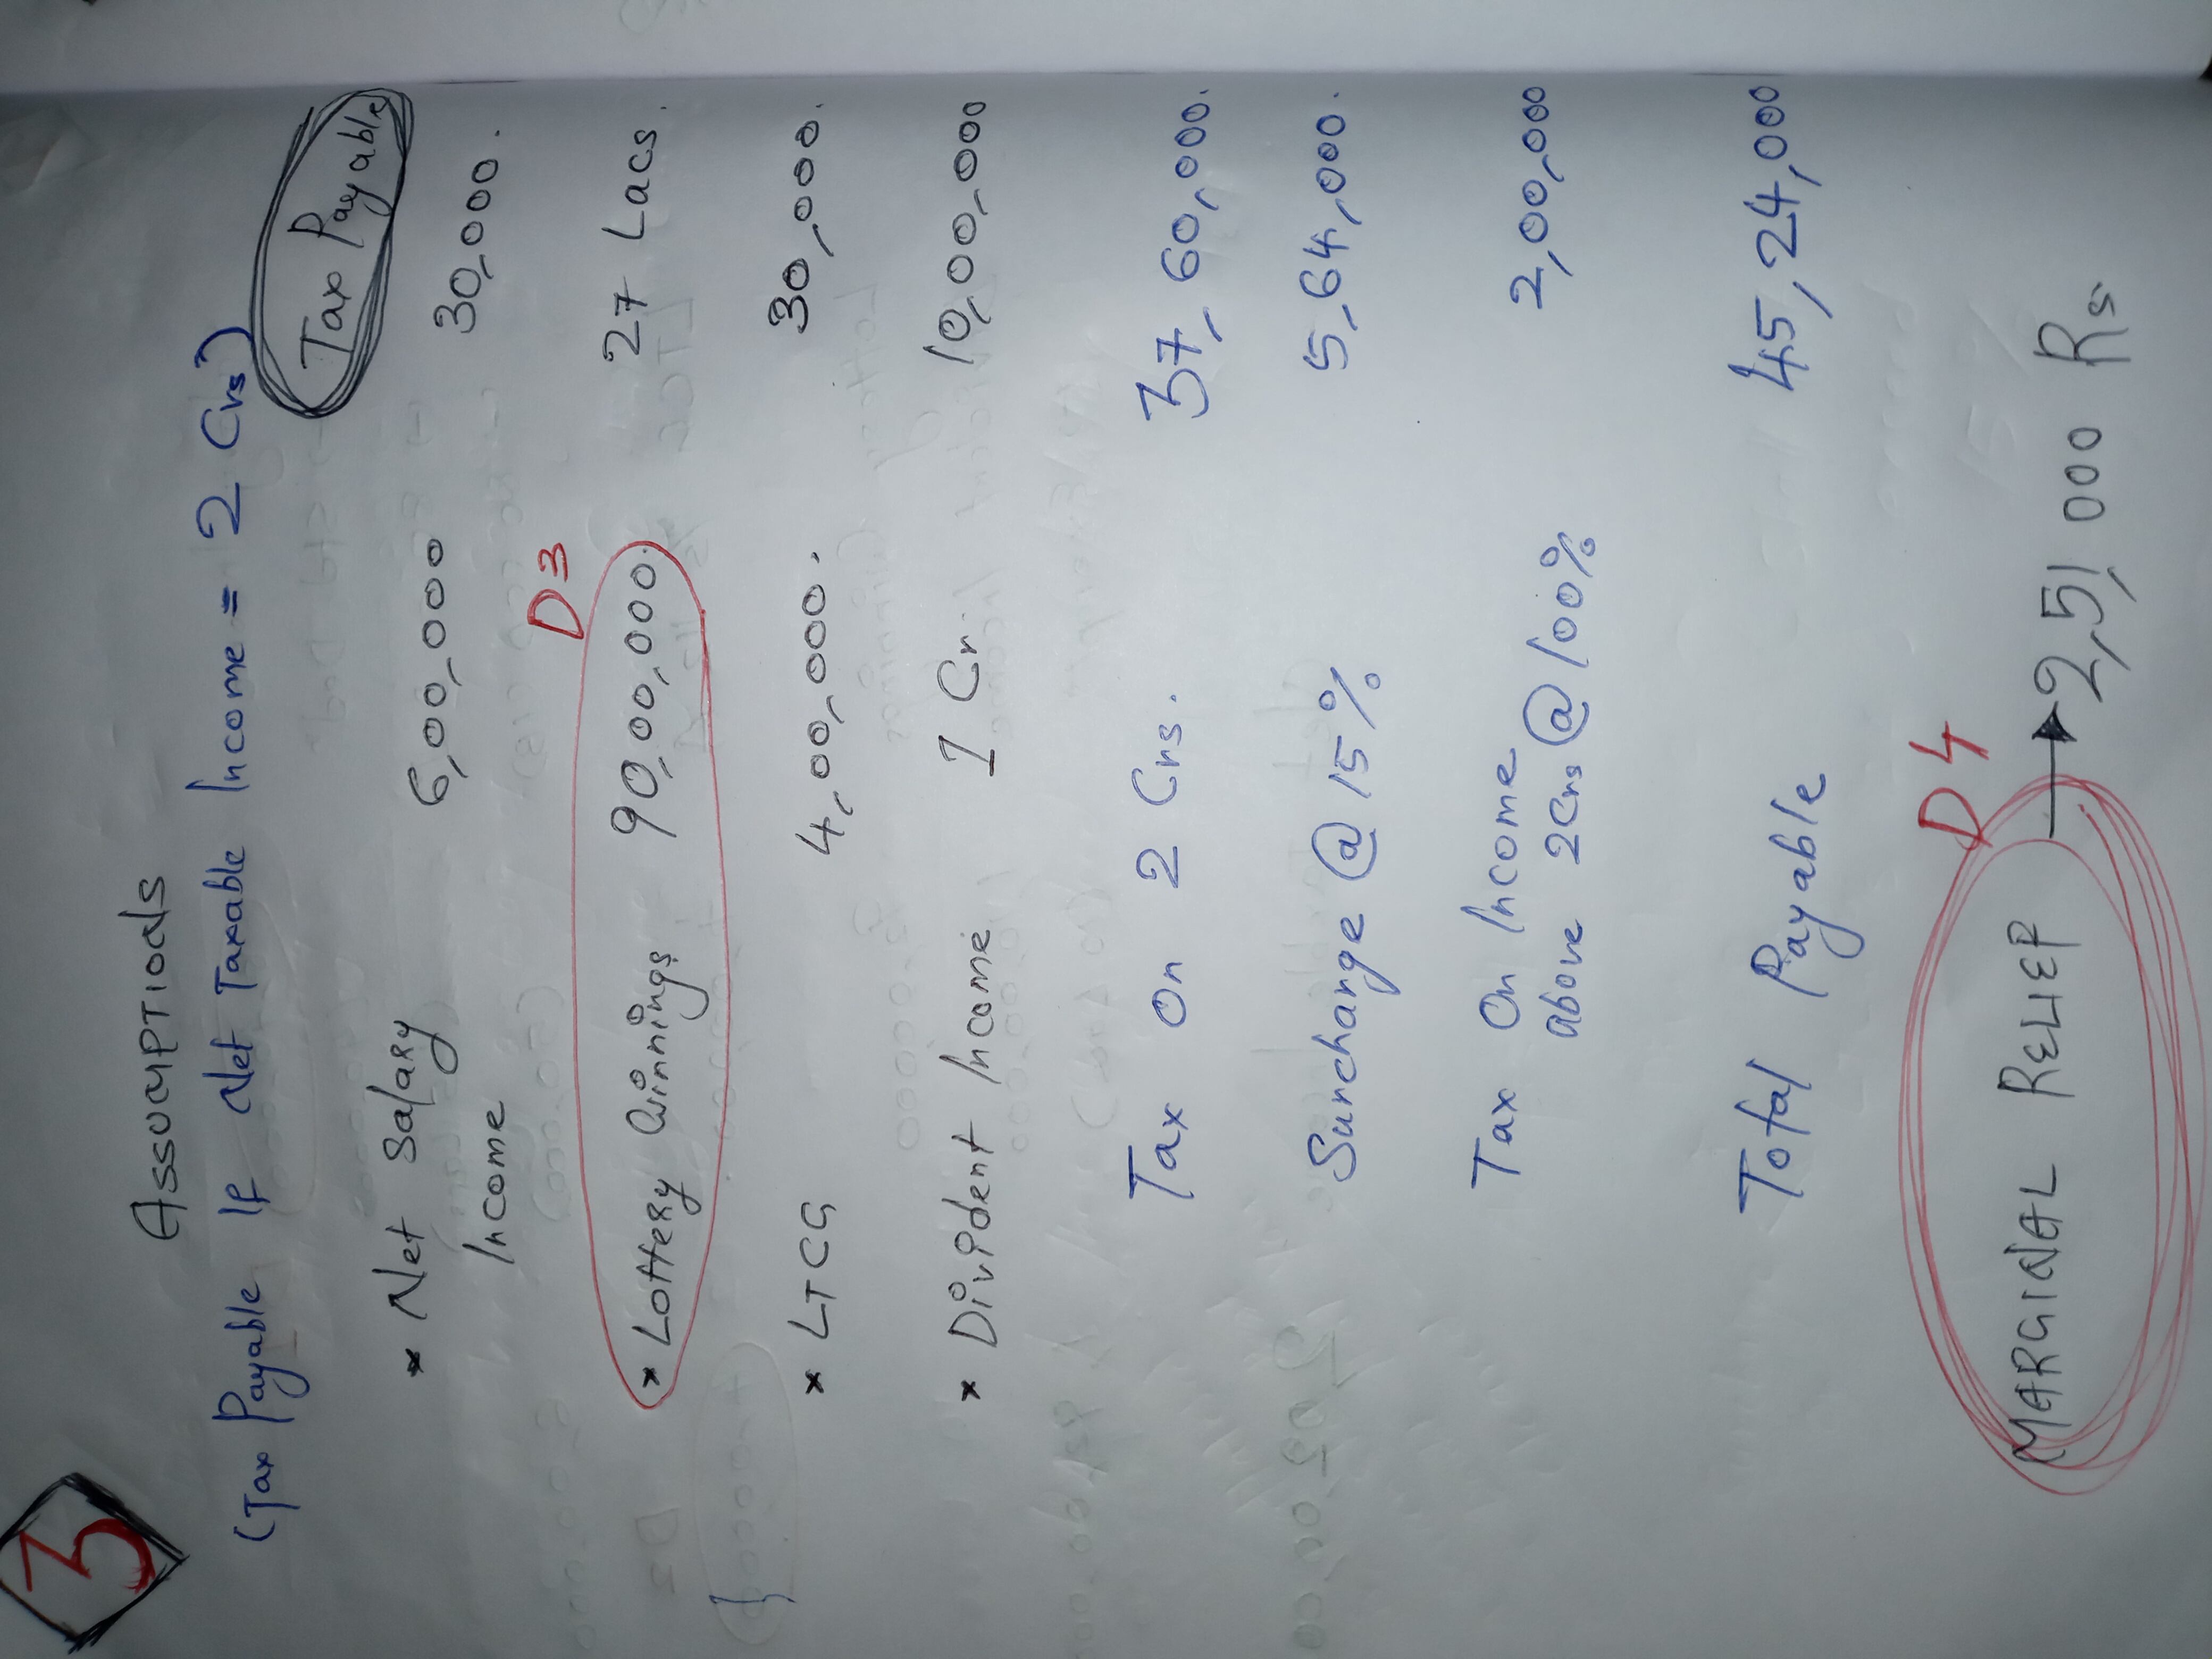 3
ASSUMPTIONS
(Tax Payable If Net Taxable Income = 2 Crs)
Tax Payable
* Net Salary 6,00,000 30,000.
Income
D3
* Lottery Winnings 90,00,000. 27 Lacs.
* LTCG 4,00,000. 30,000.
* Divident Income 1 Cr. 10,00,000
Tax On 2 Crs. 37,60,000.
Surcharge @ 15% 5,64,000.
Tax On Income
above 2Crs @ 100% 2,00,000
Total Payable 45,24,000
D4
MARGINAL RELIEF → 2,51,000 Rs